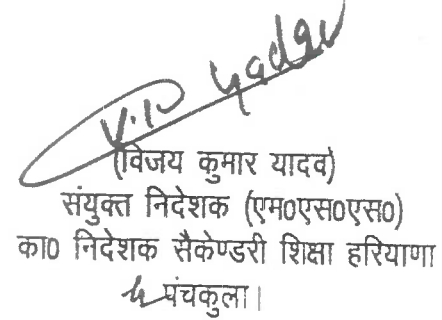 V.P Yadav
(विजय कुमार यादव)
संयुक्त निदेशक (एम0एस0एस0)
का0 निदेशक सैकेण्डरी शिक्षा हरियाणा
पंचकुला।